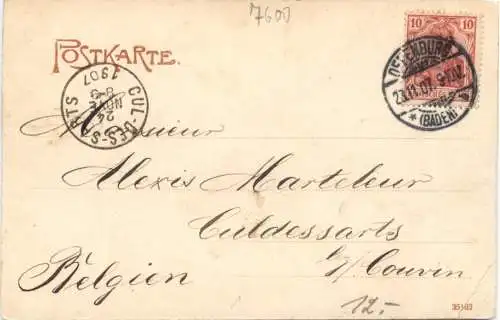 7600
POSTKARTE.
10 10
OFFENBURG
23.11.07. 9-10V.
* (BADEN) *
CUL-DES-SARTS
1907
8-9
NOV
24
Monsieur
Alexis Marteleur
Culdessarts
b/ Couvin
Belgien
12.-